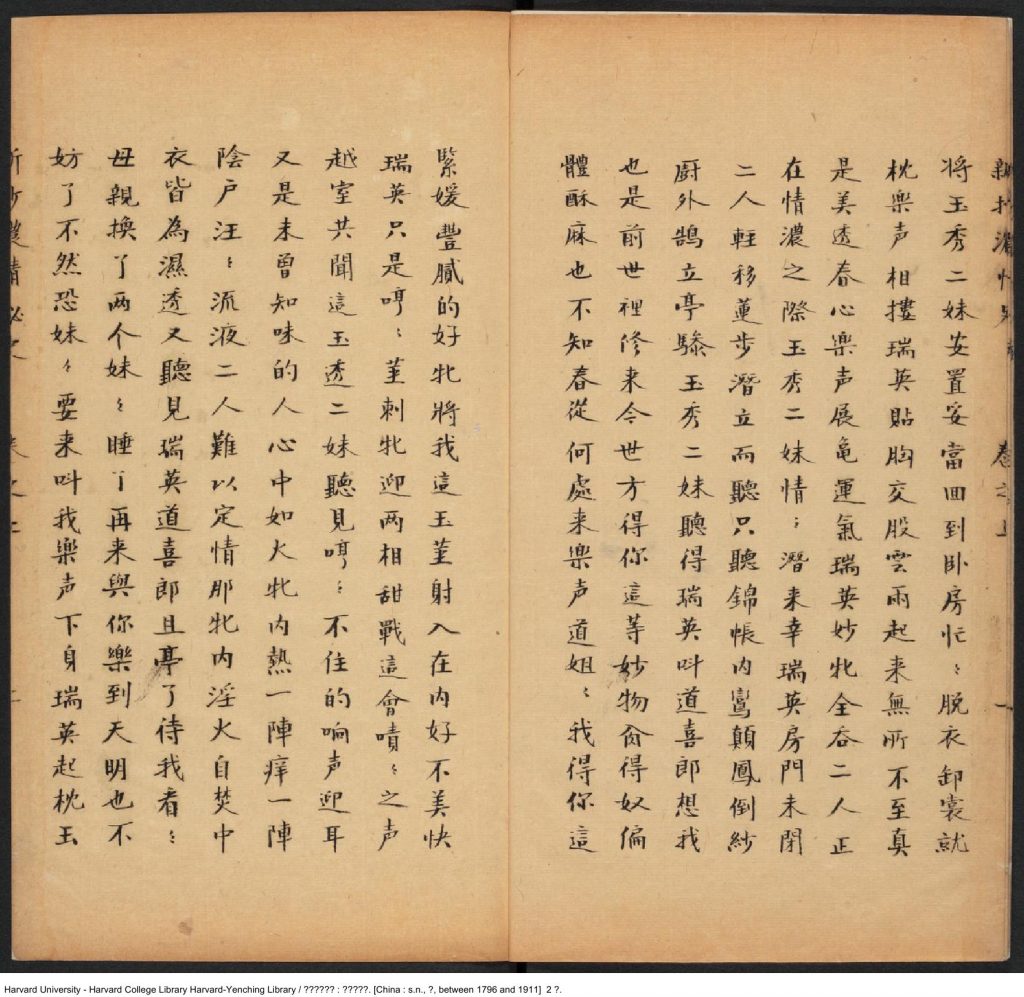 卷之上 一
将玉秀二妹安置妥當回到卧房忙〻脱衣卸裳就
枕樂声相摟瑞英貼胸交股雲雨起来無所不至真
是美透春心樂声展亀運氣瑞英妙牝全吞二人正
在情濃之際玉秀二妹情〻潛来幸瑞英房門未閉
二人輕移蓮步潛立而聽只聽錦帳内鸞顛鳳倒紗
厨外鵠立亭驂玉秀二妹聽得瑞英叫道喜郎想我
也是前世裡修来今世方得你這等妙物肏得奴偏
體酥麻也不知春從何處来樂声道姐〻我得你這
緊媛豐膩的好牝將我這玉莖射入在内好不美快
瑞英只是哼〻莖刺牝迎两相甜戰這會嘖〻之声
越室共聞這玉透二妹聽見哼〻不住的响声迎耳
又是未曾知味的人心中如火牝内熱一陣痒一陣
陰户汪〻流液二人難以定情那牝内淫火自焚中
衣皆為濕透又聽見瑞英道喜郎且亭了待我看〻
母親換了两个妹〻睡了再来與你樂到天明也不
妨了不然恐妹〻要来叫我樂声下身瑞英起枕玉